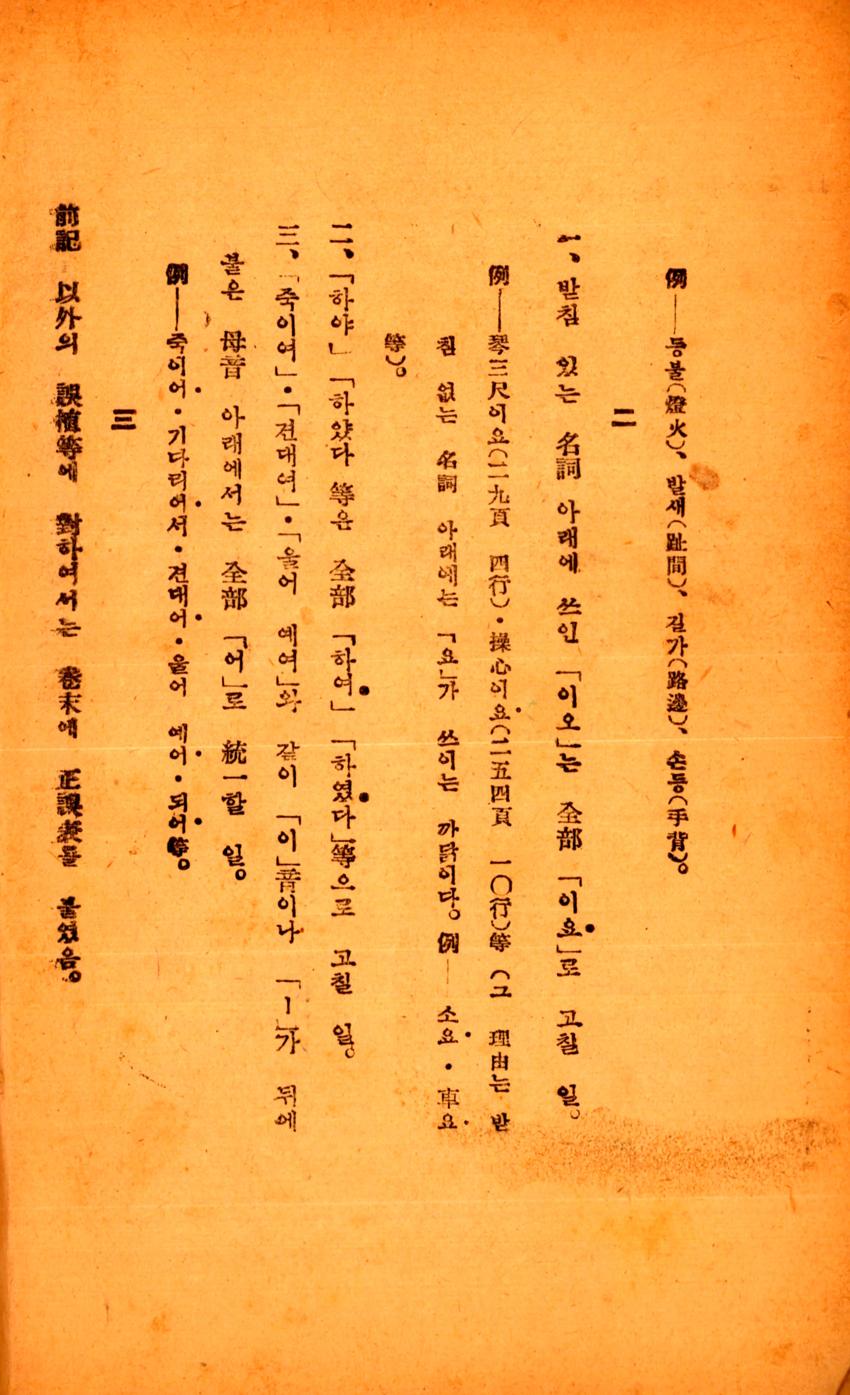 例──등불(燈火)、발새(趾間)、길가(路邊)、손등(手背)。
二
一、받침 있는 名詞 아래에 쓰인 「이오」는 全部 「이요」로 고칠 일。
例──琴三尺이요(二九頁 四行)·操心이요(二五四頁 一〇行)等 (그 理由는 받
침 없는 名詞 아래에는 「요」가 쓰이는 까닭이다。例──소요·車요
等)。
二、「하야」「하얐다 等은 全部 「하여」「하였다」等으로 고칠 일。
三、「죽이여」·「견대여」·「울어 예여」와 같이 「이」音이나 「ㅣ」가 뒤에
붙은 母音 아래에서는 全部 「어」로 統一할 일。
例──죽이어·기다리어서·견대어·울어 예어·되어等。
三
前記 以外의 誤植等에 對하여서는 卷末에 正誤表를 붙였음。